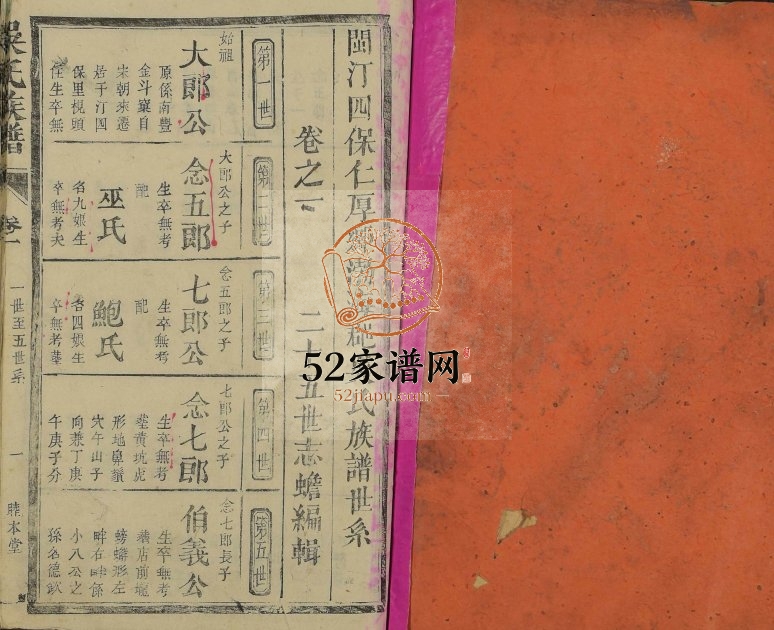 閩汀四保仁厚
氏族譜世系
卷之一
二十五世志蟾編輯
第一世
始祖
大郎公
原係南豐
金斗窠自
宋朝來遷
居于汀四
保里枧頭
住生卒無
第二世
大郎公之子
念五郎
生卒無考
配
巫氏
名九娘生
卒無考夫
第三世
念五郎之子
七郎公
生卒無考
配
鮑氏
名四娘生
卒無考墓
第四世
七郎公之子
念七郎
生卒無考
塟黄坑虎
形地鼻
穴午山子
向兼丁庚
午庚子分
第五世
念七郎長子
伯義公
生卒無考
店前壠
形左
畔右畔係
小八公之
孫名德欽
吳氏族譜
卷一
一世至五世系
一
睦本堂
52家谱网
52jiapu.com